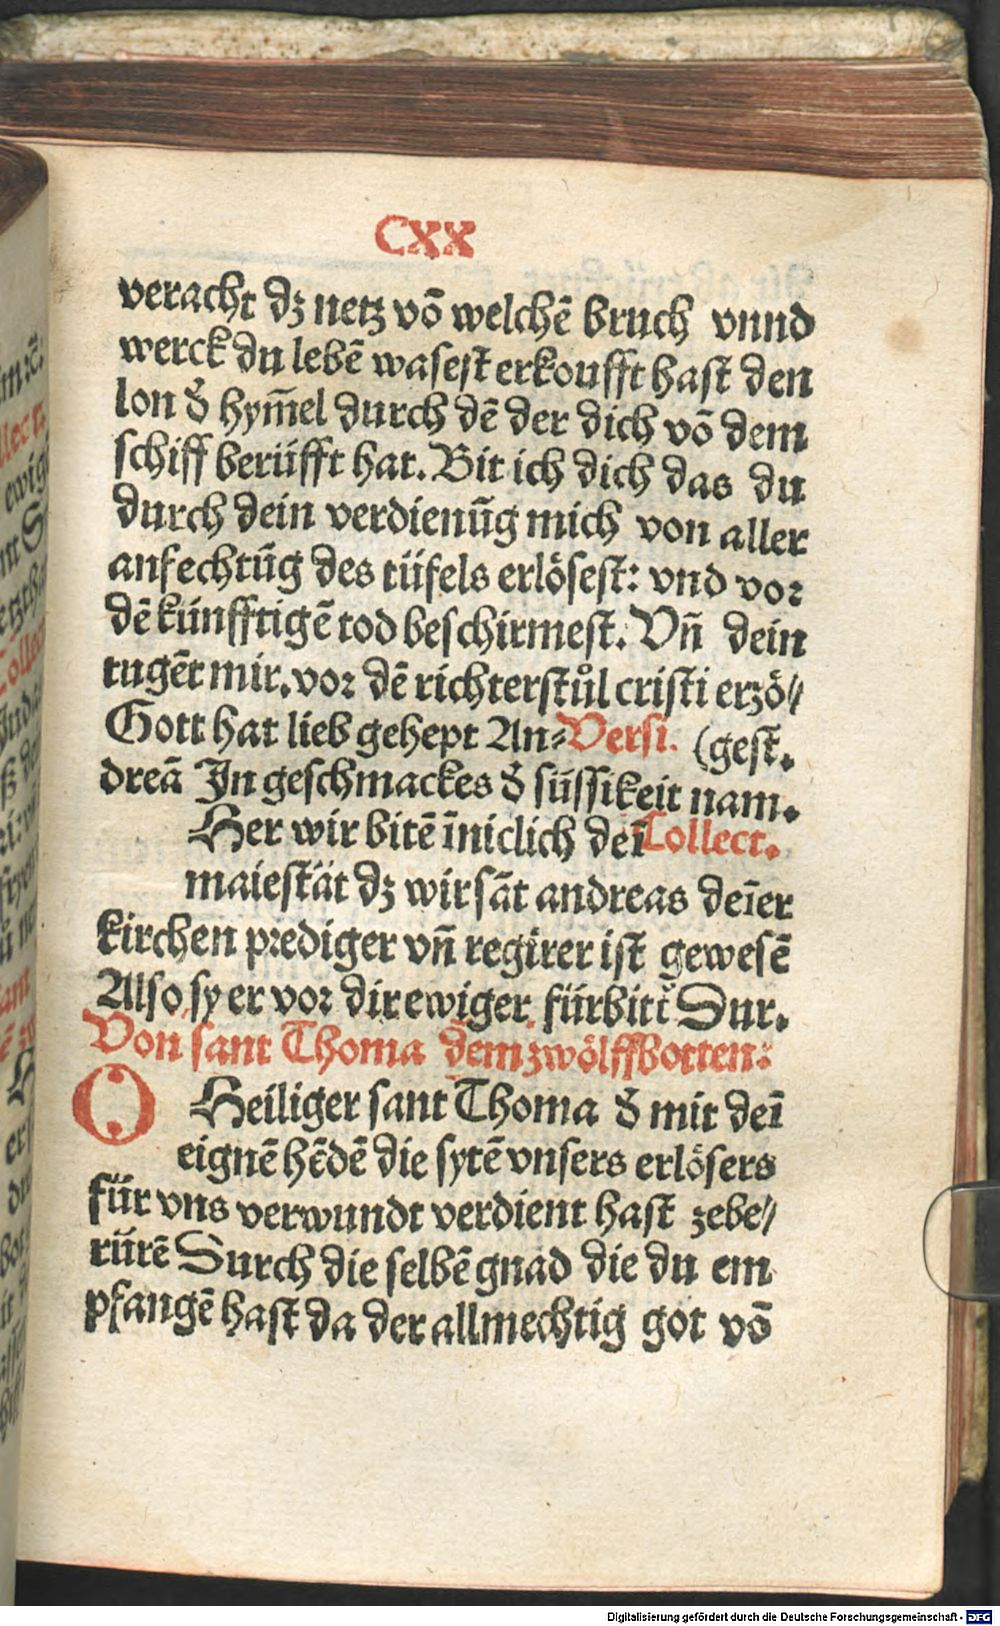 CXX
veracht dz netz võ welchẽ bruch vnnd
werck du lebẽ wasest erkoufft hast den
lon d̕ hym̃el durch dẽ der dich võ dem
schiff berüfft hat. Bit ich dich das du
durch dein verdienũg mich von aller
anfechtũg des tüfels erlösest: vnd vor
dẽ künfftigẽ tod beschirmest. Vñ dein
tugẽt mir. vor dẽ richterstůl cristi erzö/
Gott hat lieb gehept An⸗ Versi. (gest.
dreã In geschmackes d̕ süssikeit nam.
Her wir bitẽ ĩniclich deĩ Collect.
maiestät dz wir sãt andreas deĩer
kirchen prediger vñ regirer ist gewesẽ
Also sy er vor dir ewiger fürbitt̕ Dur.
Von sant Thoma dem zwölffbotten:
O Heiliger sant Thoma d̕ mit deĩ
eignẽ hẽdẽ die sytẽ vnsers erlösers
für vns verwundt verdient hast zebe/
rürẽ Durch die selbẽ gnad die du em
pfangẽ hast da der allmechtig got võ
Digitalisierung gefördert durch die Deutsche Forschungsgemeinschaft - DFG